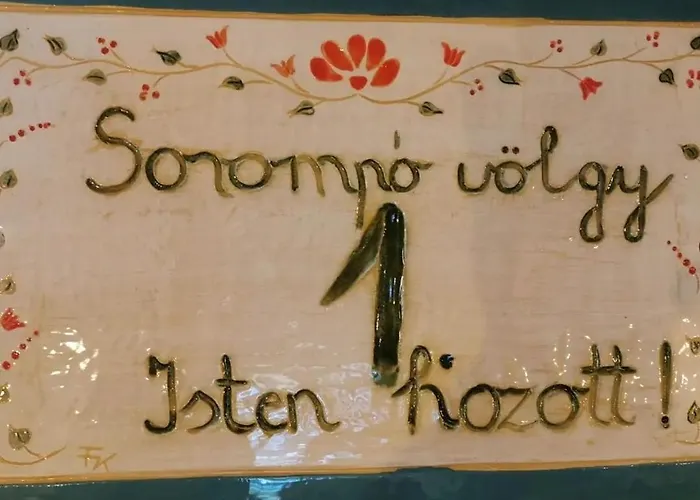 Sorompó völgy
1
Isten hozott!
FK